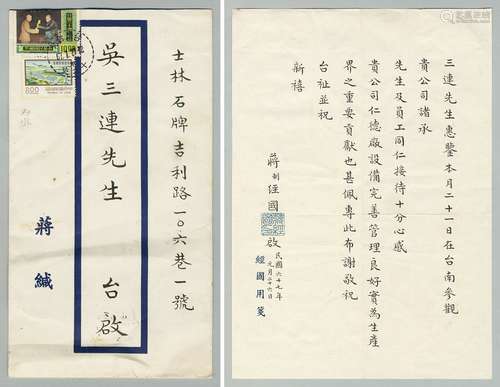 士林石牌吉利路一〇六巷一號
吳三連先生 台啟
蔣緘
三連先生惠鑒本月二十一日在台南參觀
貴公司諸承
先生及員工同仁接待十分心感
貴公司仁德廠設備完善管理良好實為生產
界之重要貢獻也甚佩專此布謝敬祝
台祉並祝
新禧
蔣經國
啟
民國六十七年
元月二十六日
經國用箋